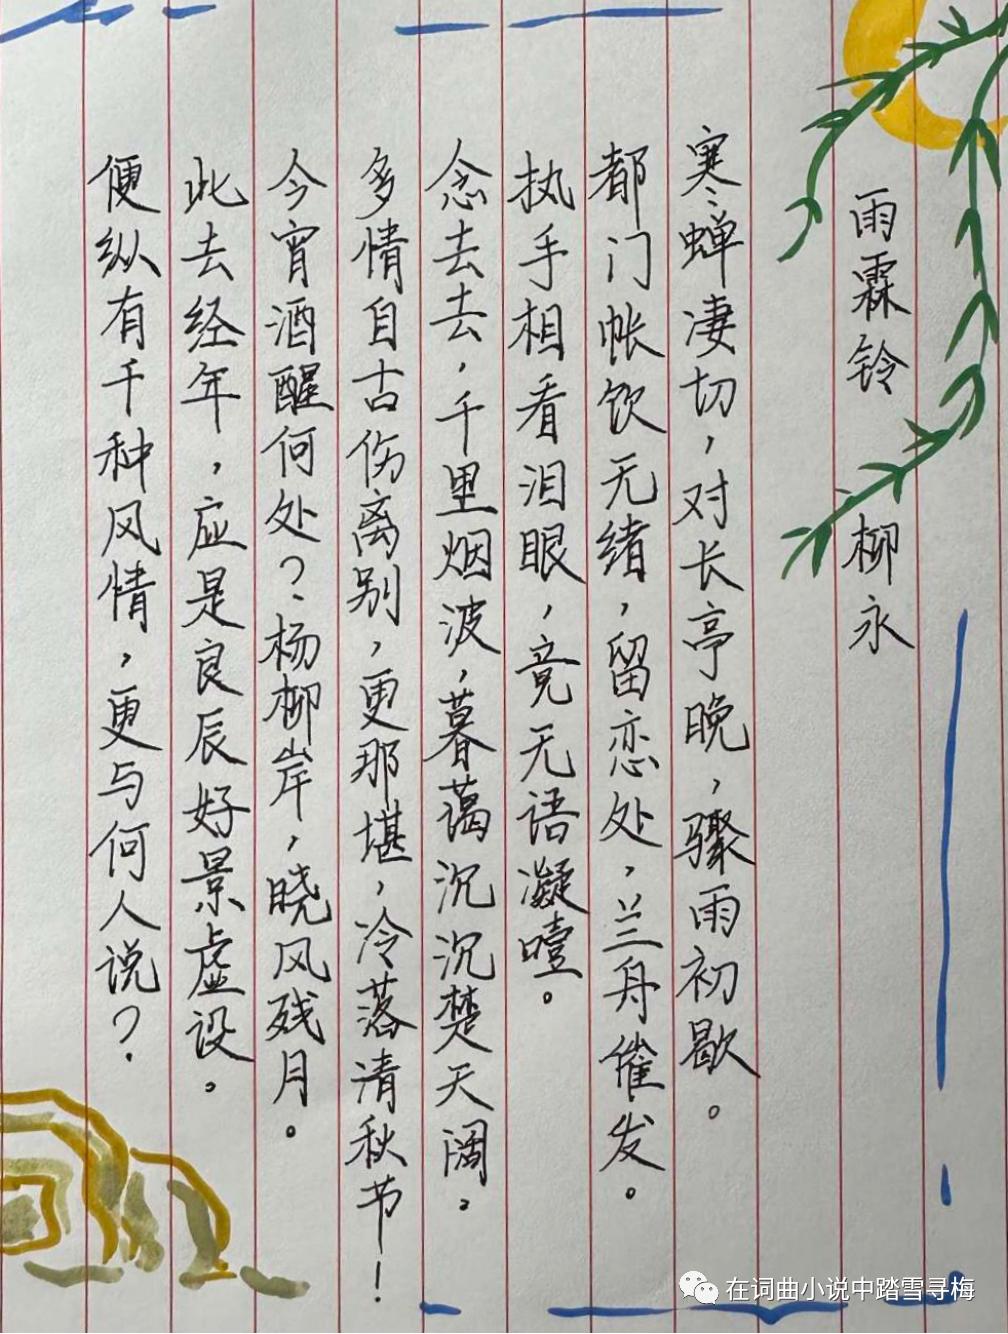 雨霖铃 柳永
寒蝉凄切，对长亭晚，骤雨初歇。
都门帐饮无绪，留恋处，兰舟催发。
执手相看泪眼，竟无语凝噎。
念去去，千里烟波，暮蔼沉沉楚天阔。
多情自古伤离别，更那堪，冷落清秋节！
今宵酒醒何处？杨柳岸，晓风残月。
此去经年，应是良辰好景虚设。
便纵有千种风情，更与何人说？
在词曲小说中踏雪寻梅